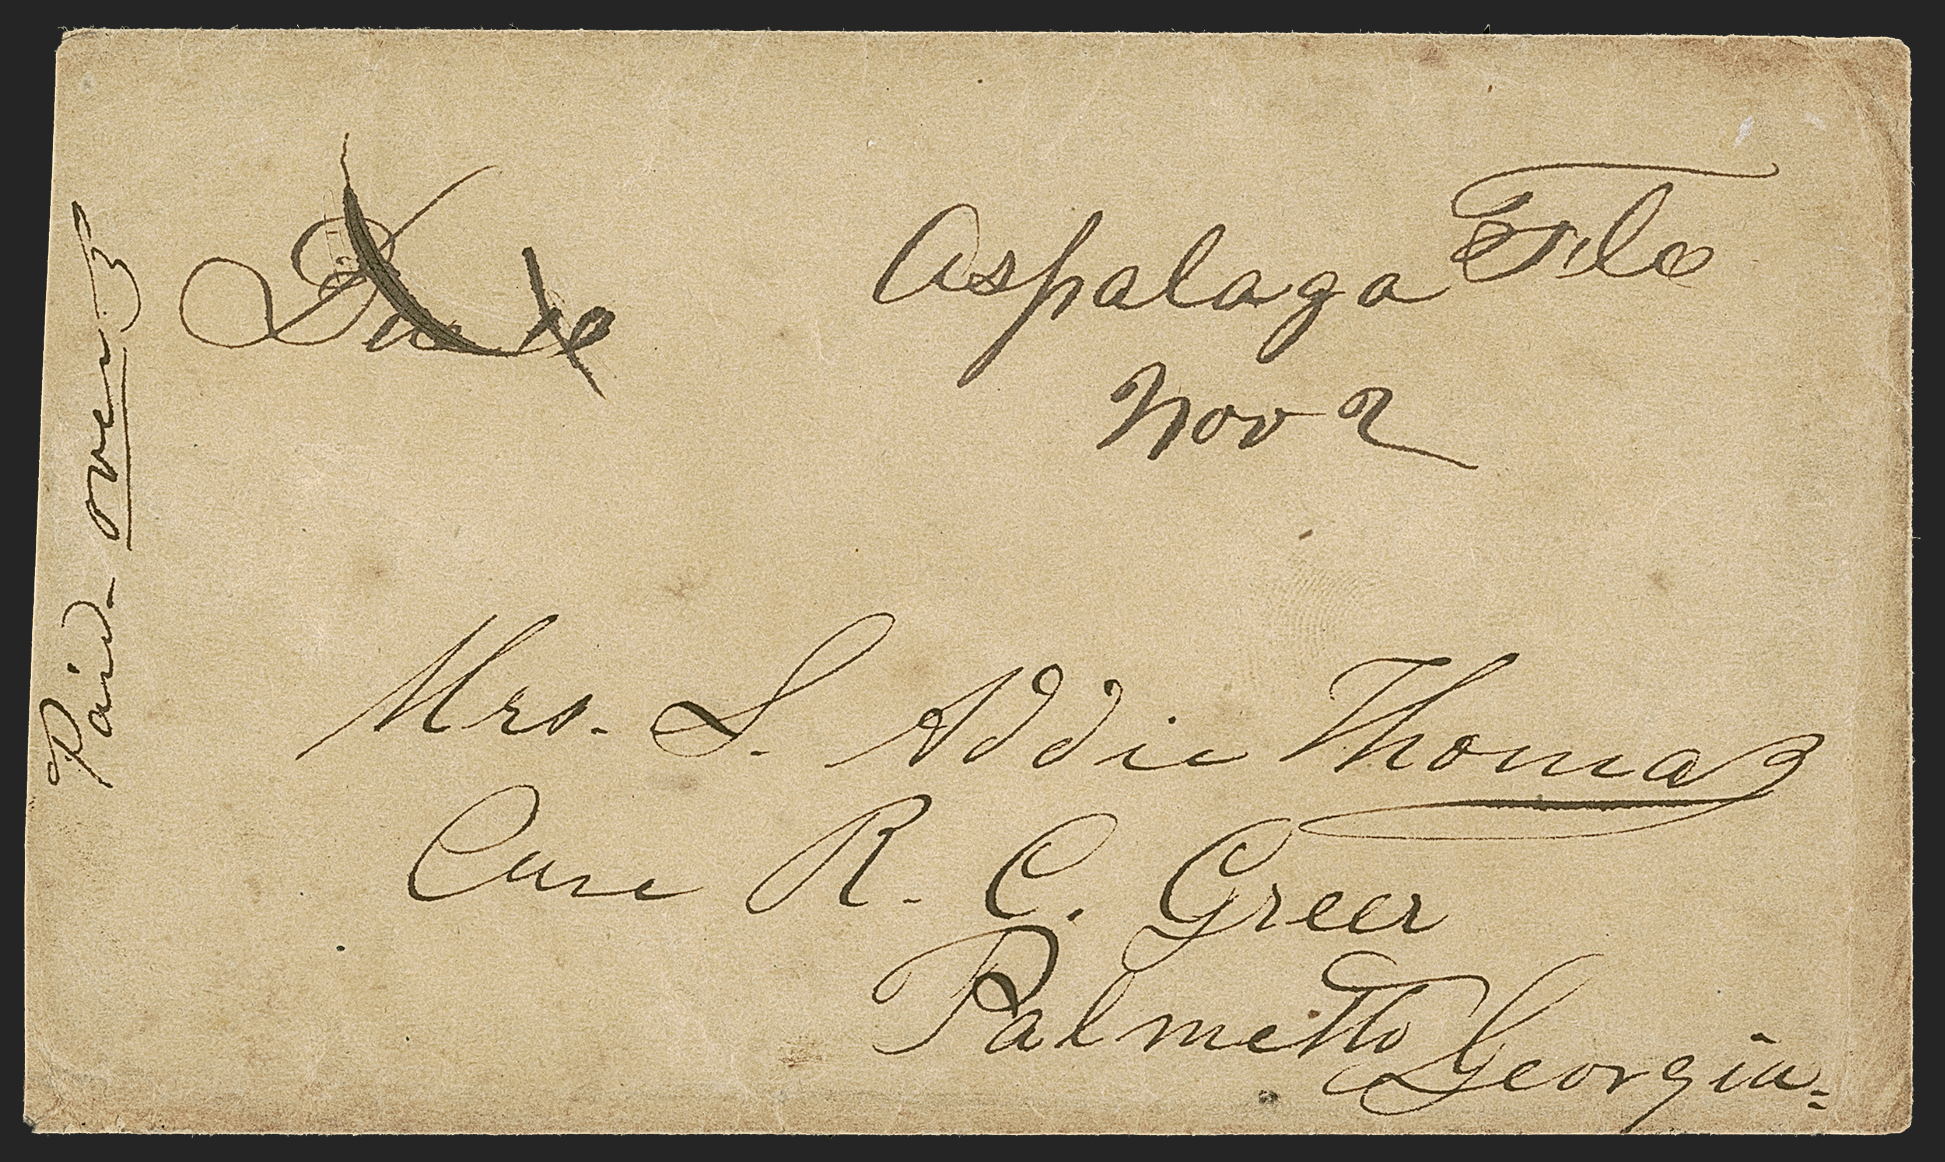 Paid - over
Due 10
Aspalaga Fla
Nov 2
Mrs. S. Addie Thomas
Care R. C. Greer
Palmetto Georgia